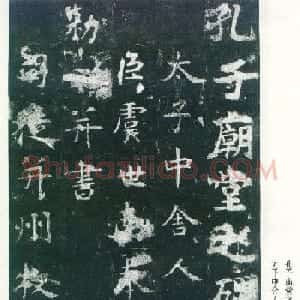 孔子廟堂之碑
太子中舍人
臣虞世南奉
勅撰并書
司徒并州牧
Shufaziliao.com